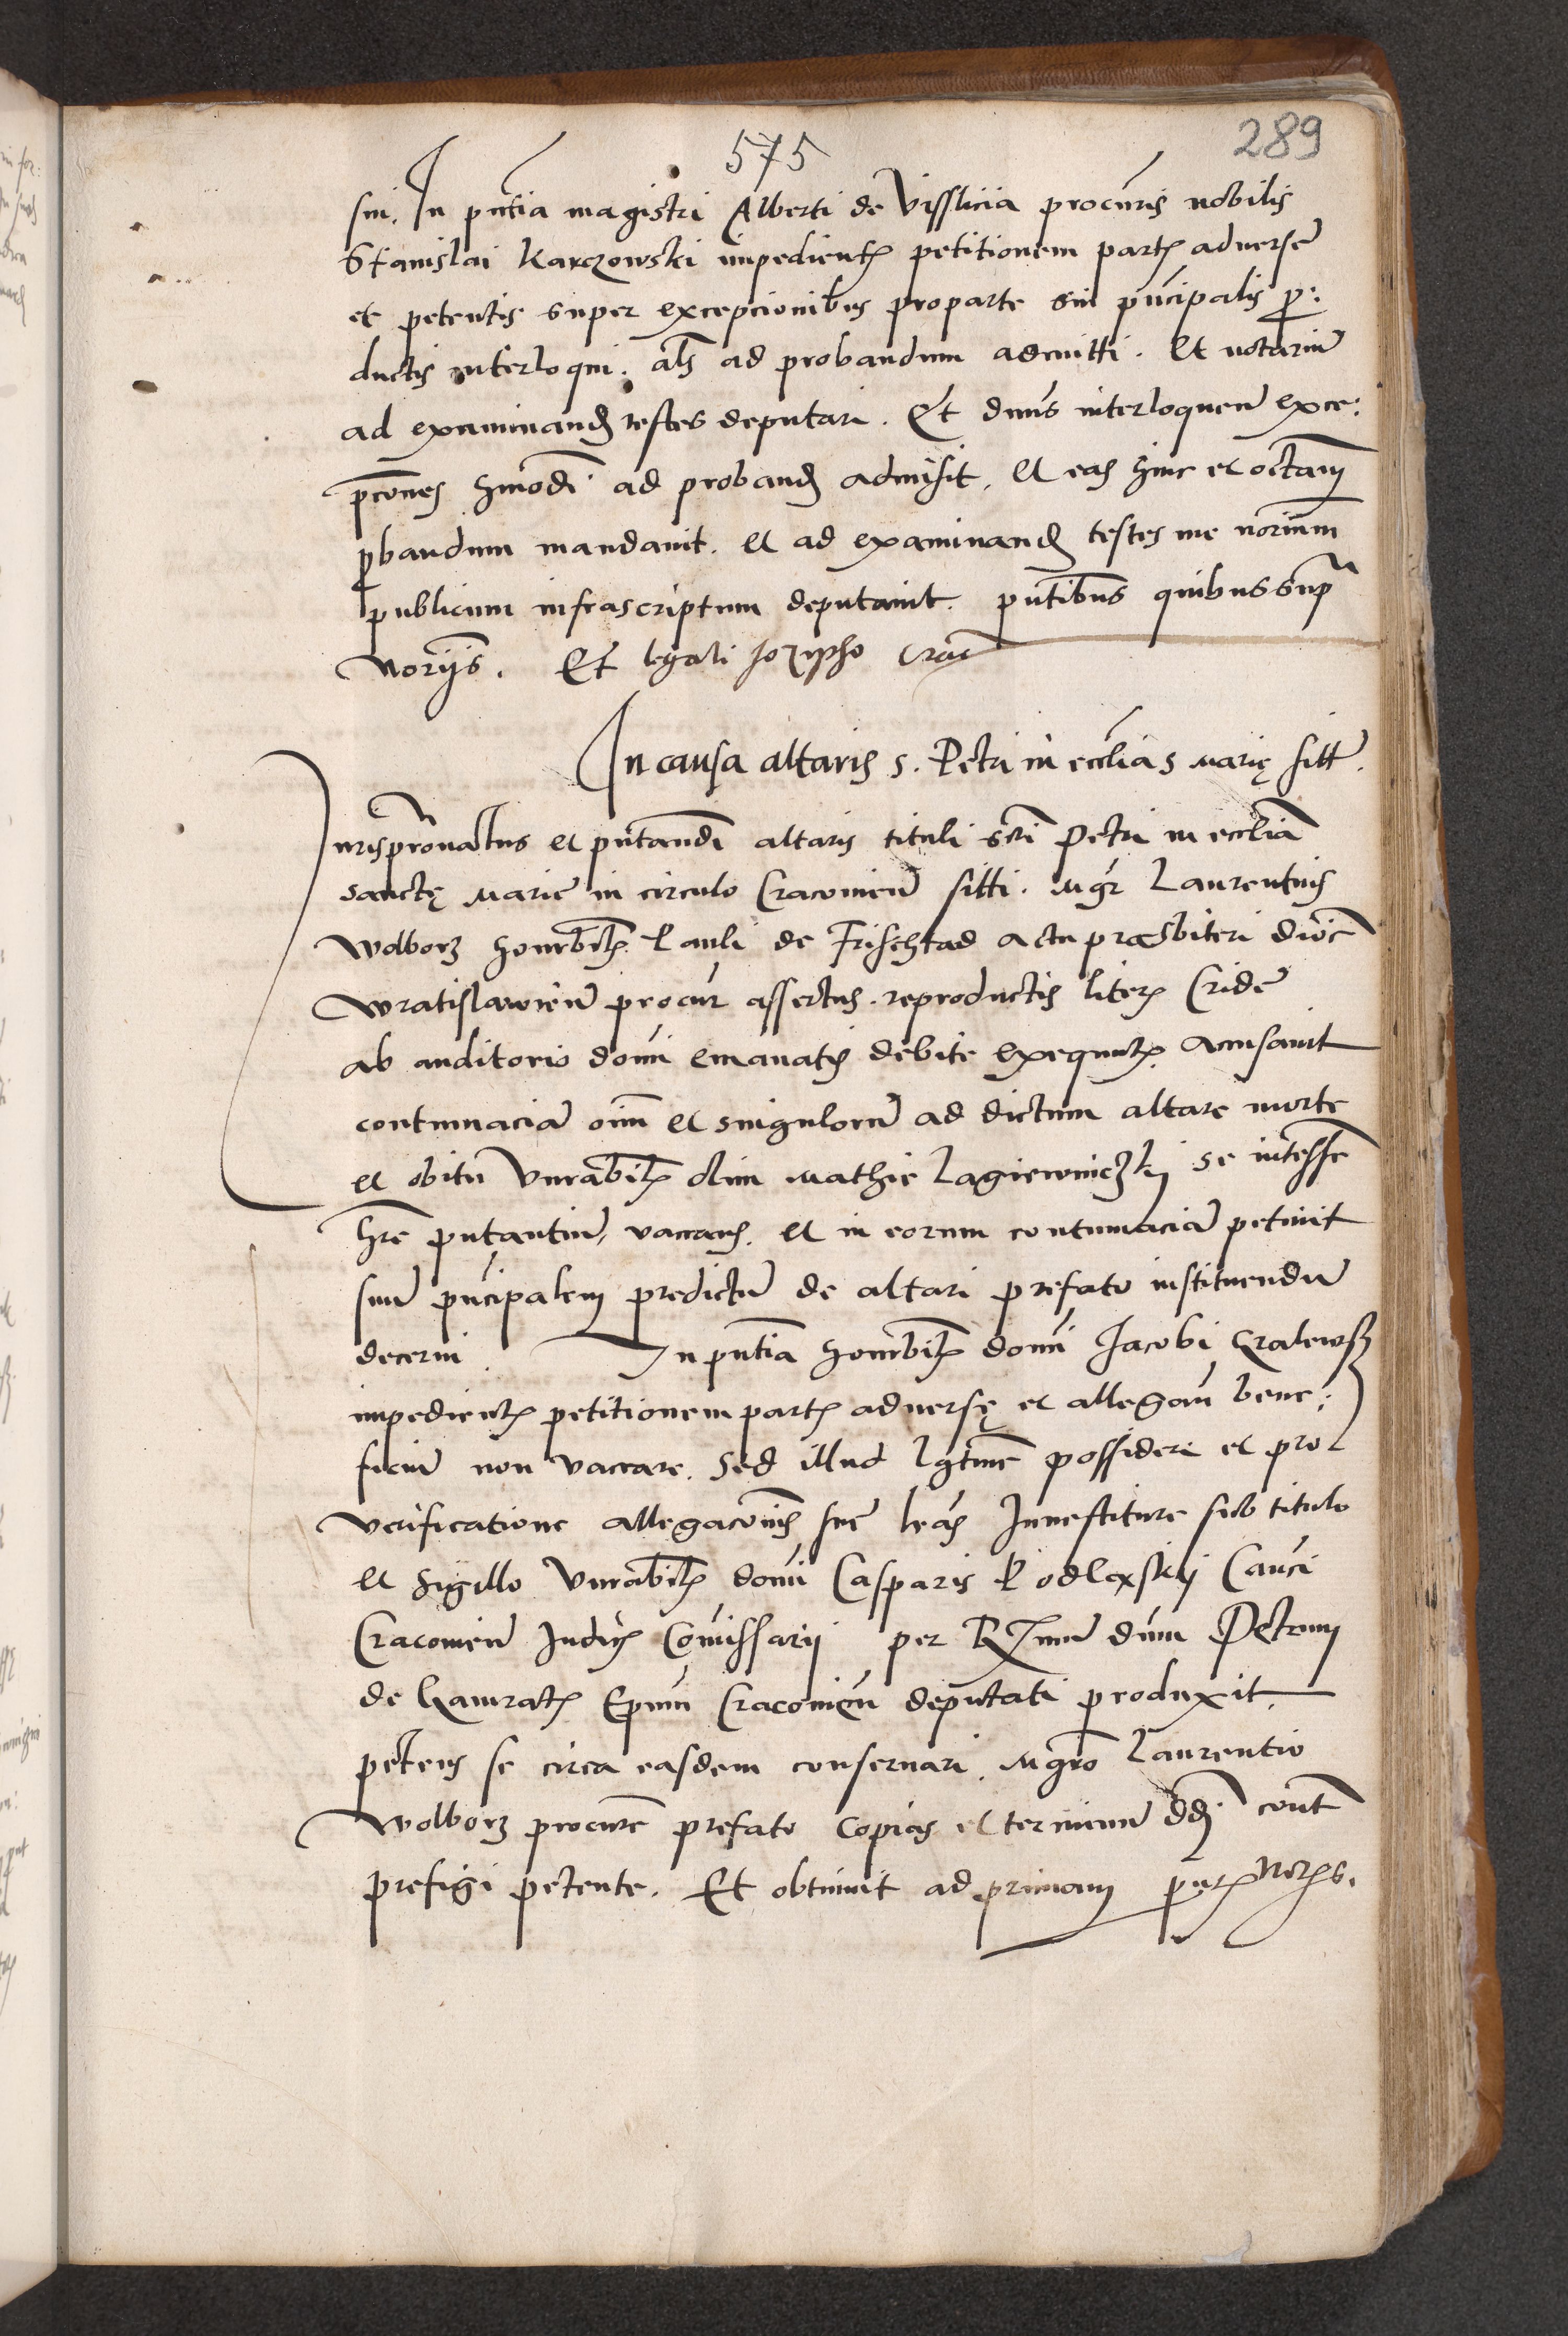 575
289
sui. In pntia magistri Alberti de Visslicia procuris nobilis
Stanislai Karczowski impedientis petitionem partis aduerse
et petentis super excepcionibus proparte sui principalis p:
ductis interloqui. als ad probandum admitti. Et notarium
ad examinand testes deputari. Et dnus interloquen exce:
pcones hmodi ad proband admisit. Et eas hinc et octavam
pbandum mandauit. et ad examinand testes me norium
publicum infrascriptum deputauit. pntibus quibus supra
norijs. Et legali Jozepho Crac
In causa altaris s. Petri in ecclia s Marię sitt.
Jurispronatus et pntandi altaris tituli scti Petri in ecclia
sanctę Marie in circulo Cracouien sitti. Mgr Laurentius
Wolborz honrabilis Pauli de Frischtad actu præsbiteri dioc
Wratislauien procur assertus. reproductis literis Cride
ab auditorio domi emanatis debite exequutis. accusauit
contumacia oim et singuloru ad dictum altare morte
et obitu Vnrabilis olim Mathie Lagiewniczkij se interesse
hre putantium, vaccans. et in eorum contumacia petiuit
suu principalem predictu de altari prefato instituendu
decerni. In pntia honrabilis domi Jacobi Gralewsk
impedientis petitionem partis aduersę et allegan bene:
ficiu non vaccare. Sed illud lgtime possideri et pro
verificatione allegaconis sue lras Inuestiture sub titulo
et Sigillo Vnrabilis domi Casparis Podlexskij Canci
Cracouien Judicis Comissarij per R[mum] dnum Petrum
de Gamratis Epum Cracouien deputati produxit.
petens se circa easdem conseruari. Mgro Laurentio
Wolborz procure prefato Copias et terminum dd cont
prefigi petente. Et obtinuit ad primam pntibus Norijs.